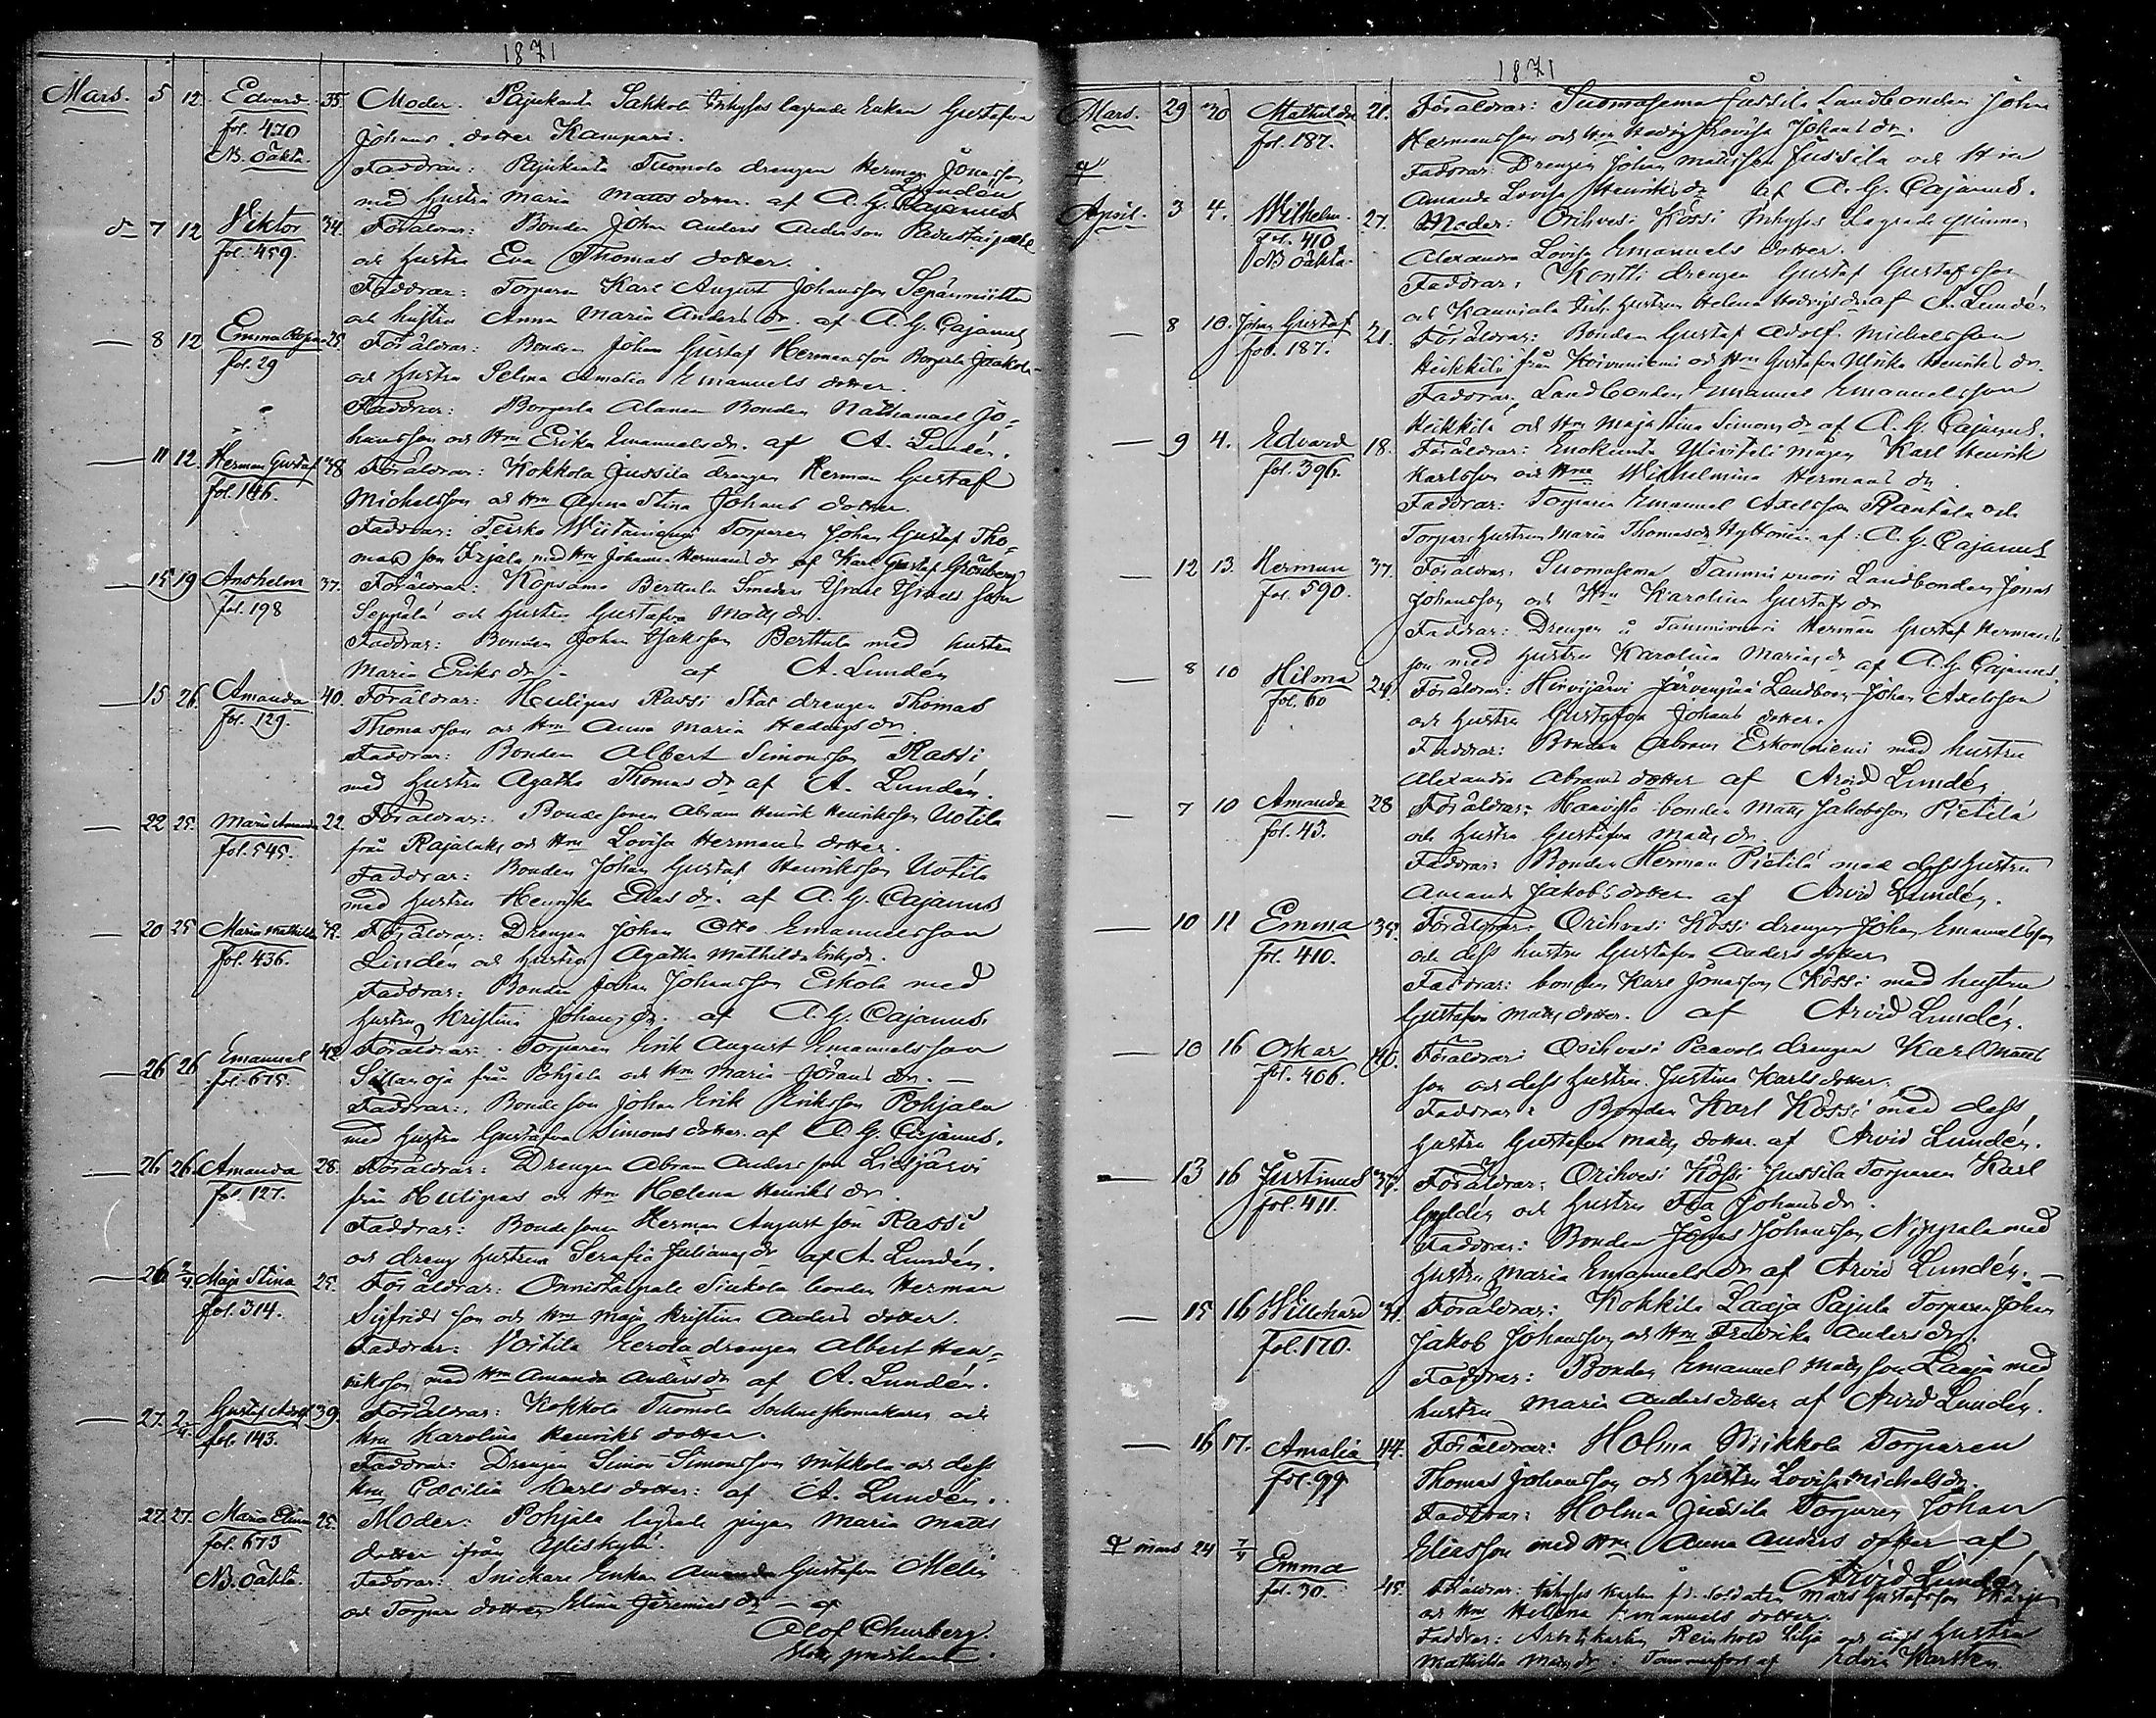 1871
Mars. 5 12. Edvard 35. Moder. Pajukanta Sakkola Inhyses lägrade Enkan Gustafva
fol. 470 Johans dotter Kamppari.
NB. Oäkta. Faddrar: Pajukanta Tuomola drengen Herman Jonasson
med hustru Maria Matts dotter. af A. G. Cajanus Lundén
7 12 Viktor 34. Föräldrar: Bonden Johan Anders Andersson
fol. 459. och hustru Eva Thomas dotter.
Faddrar: Torparen Karl August Johansson
och hustru Anna Maria Anders dr. af A. G. Cajanus
— 8 12 Emma 25. Föräldrar: Bonden Johan Gustaf Hermansson Jaakola
fol. 29 och hustru Selma Amalia Emanuels dotter.
Faddrar: Alanen Bonden Nathanael Jo-
hansson och Hru Erika Emanuels dr. af A. Lundén.
— 11 12. Herman Gustaf 38 Föräldrar: Kokkola Jussila drengen Herman Gustaf
fol. 146. Michelsson och Hru Anna Stina Johans dotter.
Faddrar: Teisko Torparen Johan Gustaf Tho-
mas son med Hru Johanna Hermans dr af Karl Gustaf Grönberg
— 15 19 Anshelm 37. Föräldrar: Berttula Smeden
fol. 198 Seppälä och hustru Gustafva Matts dr.
Faddrar: Bonden Johan Berttula med hustru
Maria Eriks dr. af A. Lundén
— 15 26. Amanda 40. Föräldrar: Rassi Stat drengen Thomas
fol. 129. Thomasson och Hru Anna Maria Hedvigs dr.
Faddrar: Bonden Albert Simonsson Rassi
med hustru Agatha Thomas dr af A. Lundén.
— 22 25. Maria Amanda 22. Föräldrar: Bonde sonen Abram Henrik Henriksson Uotila
fol. 545. från och Hru Lovisa Hermans dotter.
Faddrar: Bonden Johan Gustaf Henriksson Uotila
med hustru Henrika Elias dr. af A. G. Cajanus
— 20 25 Maria Mathilda 42. Föräldrar: Drengen Johan Otto Emanuelsson
fol. 436. Lindén och hustru Agatha Mathilda Eriks dr.
Faddrar: Bonden Johan Johansson Eskola med
hustru Kristina Johans dr. af A. G. Cajanus.
— 26 26 Emanuel 42. Föräldrar: Torparen Erik August Emanuelsson
fol. 675. från Pohjala och Hru Maria Jörans dr. —
Faddrar: Bonde son Johan Erik Eriksson Pohjala
med hustru Gustafva Simons dotter. af A. G. Cajanus.
— 26 26. Amanda 28. Föräldrar: Drengen Abram Andersson
fol. 127. från och Hru Helena Henriks dr.
Faddrar: Bonde sonen Herman August son Rassi
och dreng hustrun Serafia Julianas dr af A. Lundén.
— 26 2/4. Maja Stina 25. Föräldrar: Onnistaipale Sinkola bonden Herman
fol. 314. Sigfrids son och Hru Maja Kristina Anders dotter.
Faddrar: Voitila Eerola drengen Albert Hen-
riksson med Hru Amanda Anders dr af A. Lundén.
— 27. 2/4 Gustaf Adolf 39. Föräldrar: Kokkola Tuomola och
fol. 143. Hru Karolina Henriks dotter.
Faddrar: Drengen Simon Simonsson Mikkola och dess
Hru Cæcilia Karls dotter: af A. Lundén.
27 27. Maria Elina 25. Moder. Pohjala lägrade pigan Maria Matts
fol. 673 dotter från Yliskylä.
NB. Oäkta. Faddrar: Snickare Enkan Amanda Gustafva Melin
och Torpare dottren Elina Jeremias dr — af
Olof Churberg.
1871
Mars. 29 30 Mathilda 21. Föräldrar: Suomasema Jussila Landbonden Johan
fol. 187. Hermansson och Hru Hedvig Lovisa Johans dr.
Faddrar: Drengen Johan Mattsson Jussila och Hru
Amanda Lovisa Henriks dr af A. G. Cajanus.
April. 3 4. Wilhelm. 27. Moder: Orihvesi Kössi Inhyses Lägrade qvinnan
fol. 410 Alexandra Lovisa Emanuels dotter.
NB Oäkta. Faddrar: drengen Gustaf Gustafsson
och hustrun Helena Hedvigs dr af A. Lundén
— 8 10. Johan Gustaf 21. Föräldrar: Bonden Gustaf Adolf Michelsson
fol. 187. Heikkilä från Koivuniemi och Hru Gustafva Ulrika Henriks dr.
Faddrar. Landbonden Emanuel Emanuelsson
Heikkilä och Hru Maja Stina Simons dr af A. G. Cajanus.
— 9 4. Edvard 18. Föräldrar: Enokunta mågen Karl Henrik
fol. 396. Karlsson och Hru Wilhelmina Hermans dr.
Faddrar: Torparen Emanuel Axelsson Rantala och
Torpare hustrun Maria Thomas dr af: A. G. Cajanus
— 12 13. Herman 37. Föräldrar: Suomasema Tammivuori Landbonden Jonas
fol. 590. Johansson och Hru Karolina Gustafs dr
Faddrar: Drengen å Tammivuori Herman Gustaf Hermans
son med hustru Karolina Marias dr af A. G. Cajanus.
— 8 10 Hilma 24. Föräldrar: Hirvijärvi Järvenpää Landboen Johan Axelsson
fol. 60 och hustru Gustafva Johans dotter.
Faddrar: Bonden Abram Eskonniemi med hustru
Alexandra Abrams dotter af Arvid Lundén.
— 7 10 Amanda 28 Föräldrar: Haavisto bonden Matts Jakobsson Pietilä
fol. 43. och hustru Gustafva Matts dr.
Faddrar: Bonden Herman Pietilä med dess hustru
Amanda Jakobs dotter af Arvid Lundén.
— 10 11 Emma 35. Föräldrar: Orihvesi Kössi drengen Johan Emanuelsson
fol. 410. och dess hustru Gustafva Anders dotter
Faddrar: bonden Karl Jonasson Kössi med hustru
Gustafva Matts dotter. af Arvid Lundén.
— 10 16 Oskar 40. Föräldrar: Orihvesi Paavola drengen Karl Matts
fol. 406. son och dess hustru Justina Karls dotter.
Faddrar: Bonden Karl Kössi med dess
hustru Gustafva Matts dotter. af Arvid Lundén.
— 13 16 Justinus 36. Föräldrar: Orihvesi Kössi Jussila Torparen Karl
fol. 411. Gyldén och hustru Eva Johans dr.
Faddrar: Bonden Jonas Johansson Nippala med
hustru Maria Emanuels dr af Arvid Lundén. —
— 15 16 Willehard 31. Föräldrar: Kokkila Laaja Pajula Torparen Johan
fol. 170. Jakob Johansson och Hru Fredrika Anders dr.
Faddrar: Bonden Emanuel Matts son Laaja med
hustru Maria Anders dotter af Arvid Lundén.
— 16 17. Amalia 44. Föräldrar: Holma Mikkola Torparen
fol. 99. Thomas Johansson och hustru Lovisa Michels dr.
Faddrar: Holma Jussila Torparen Johan
Eliasson med Hru Anna Anders dotter af
Arvid Lundén
mars 24 7/4 Emma 45. Föräldrar: Inhyses karlen fd. soldaten Mats Gustafsson
fol. 30. och Hru Helena Emanuels dotter.
Faddrar: Arbetskarlen Reinhold Lilja och dess hustru
Mathilda Matts dr i Tammerfors af Edvin Karsten.